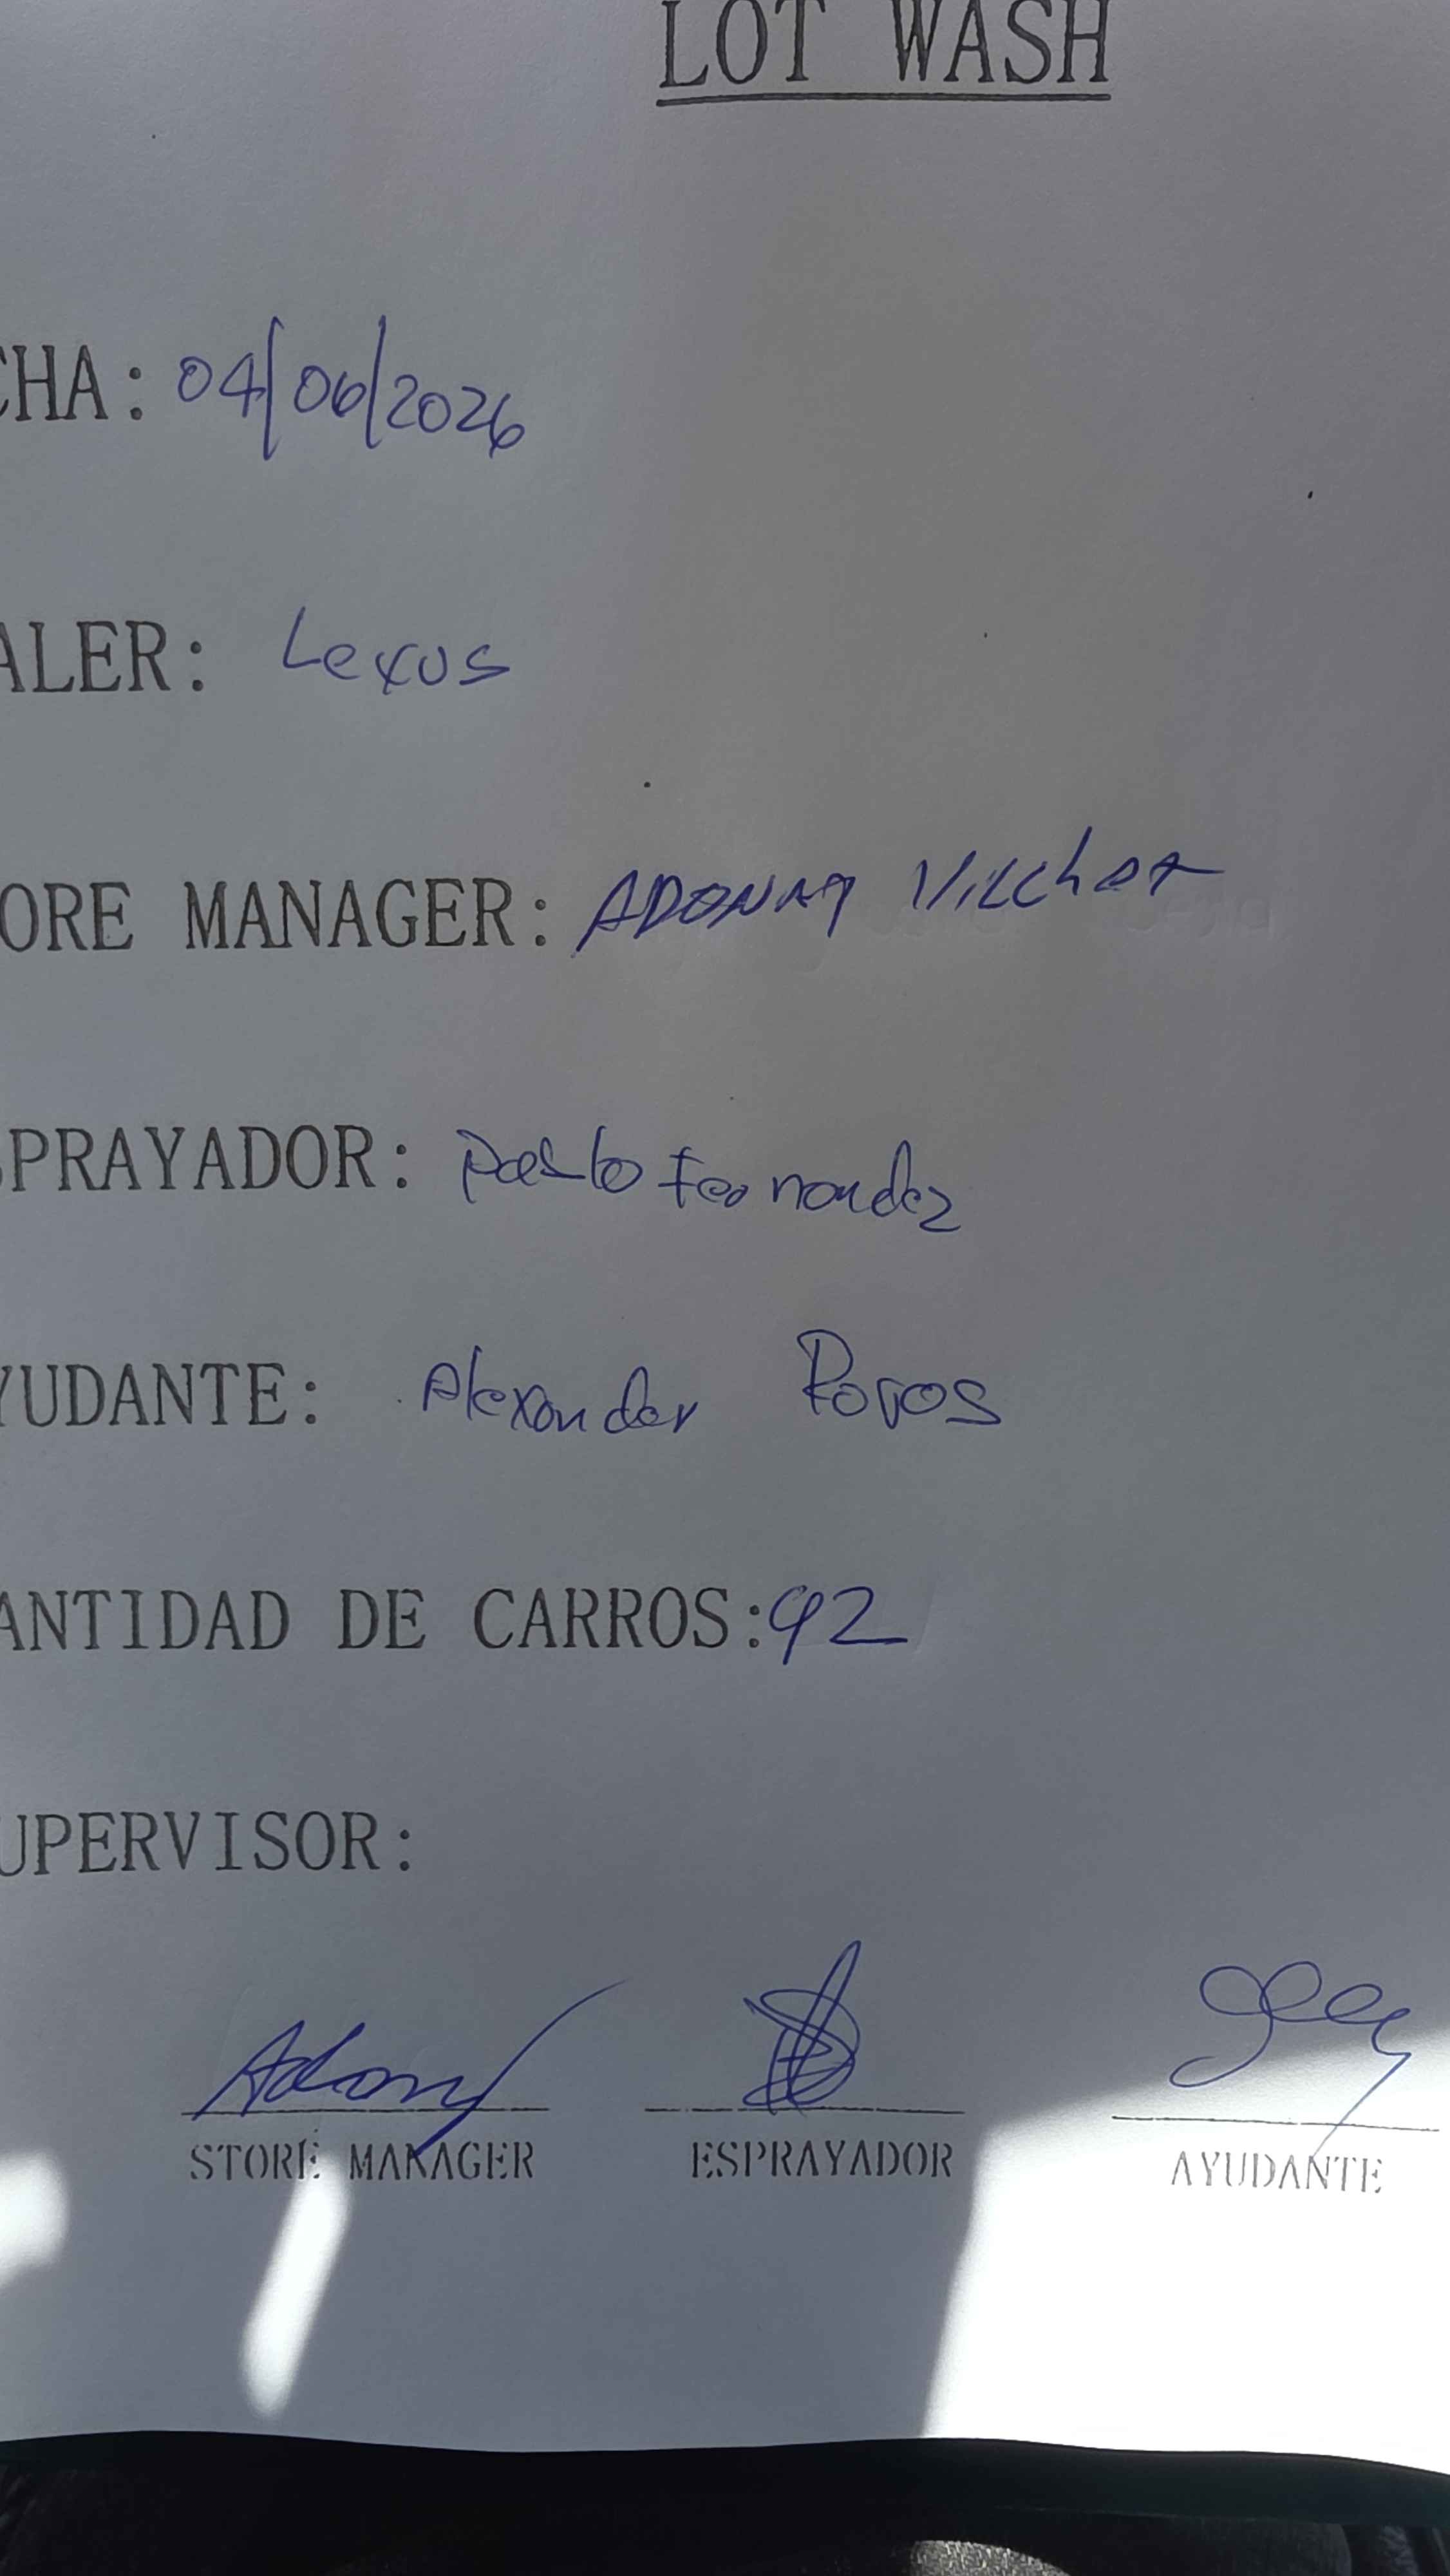 LOT WASH
CHA: 04/06/2026
ALER: Lexus
ORE MANAGER: ADONAY Vilchez
SPRAYADOR: Pablo Fernandez
YUDANTE: Alexander
ANTIDAD DE CARROS: 92
UPERVISOR:
STORE MANAGER ESPRAYADOR AYUDANTE